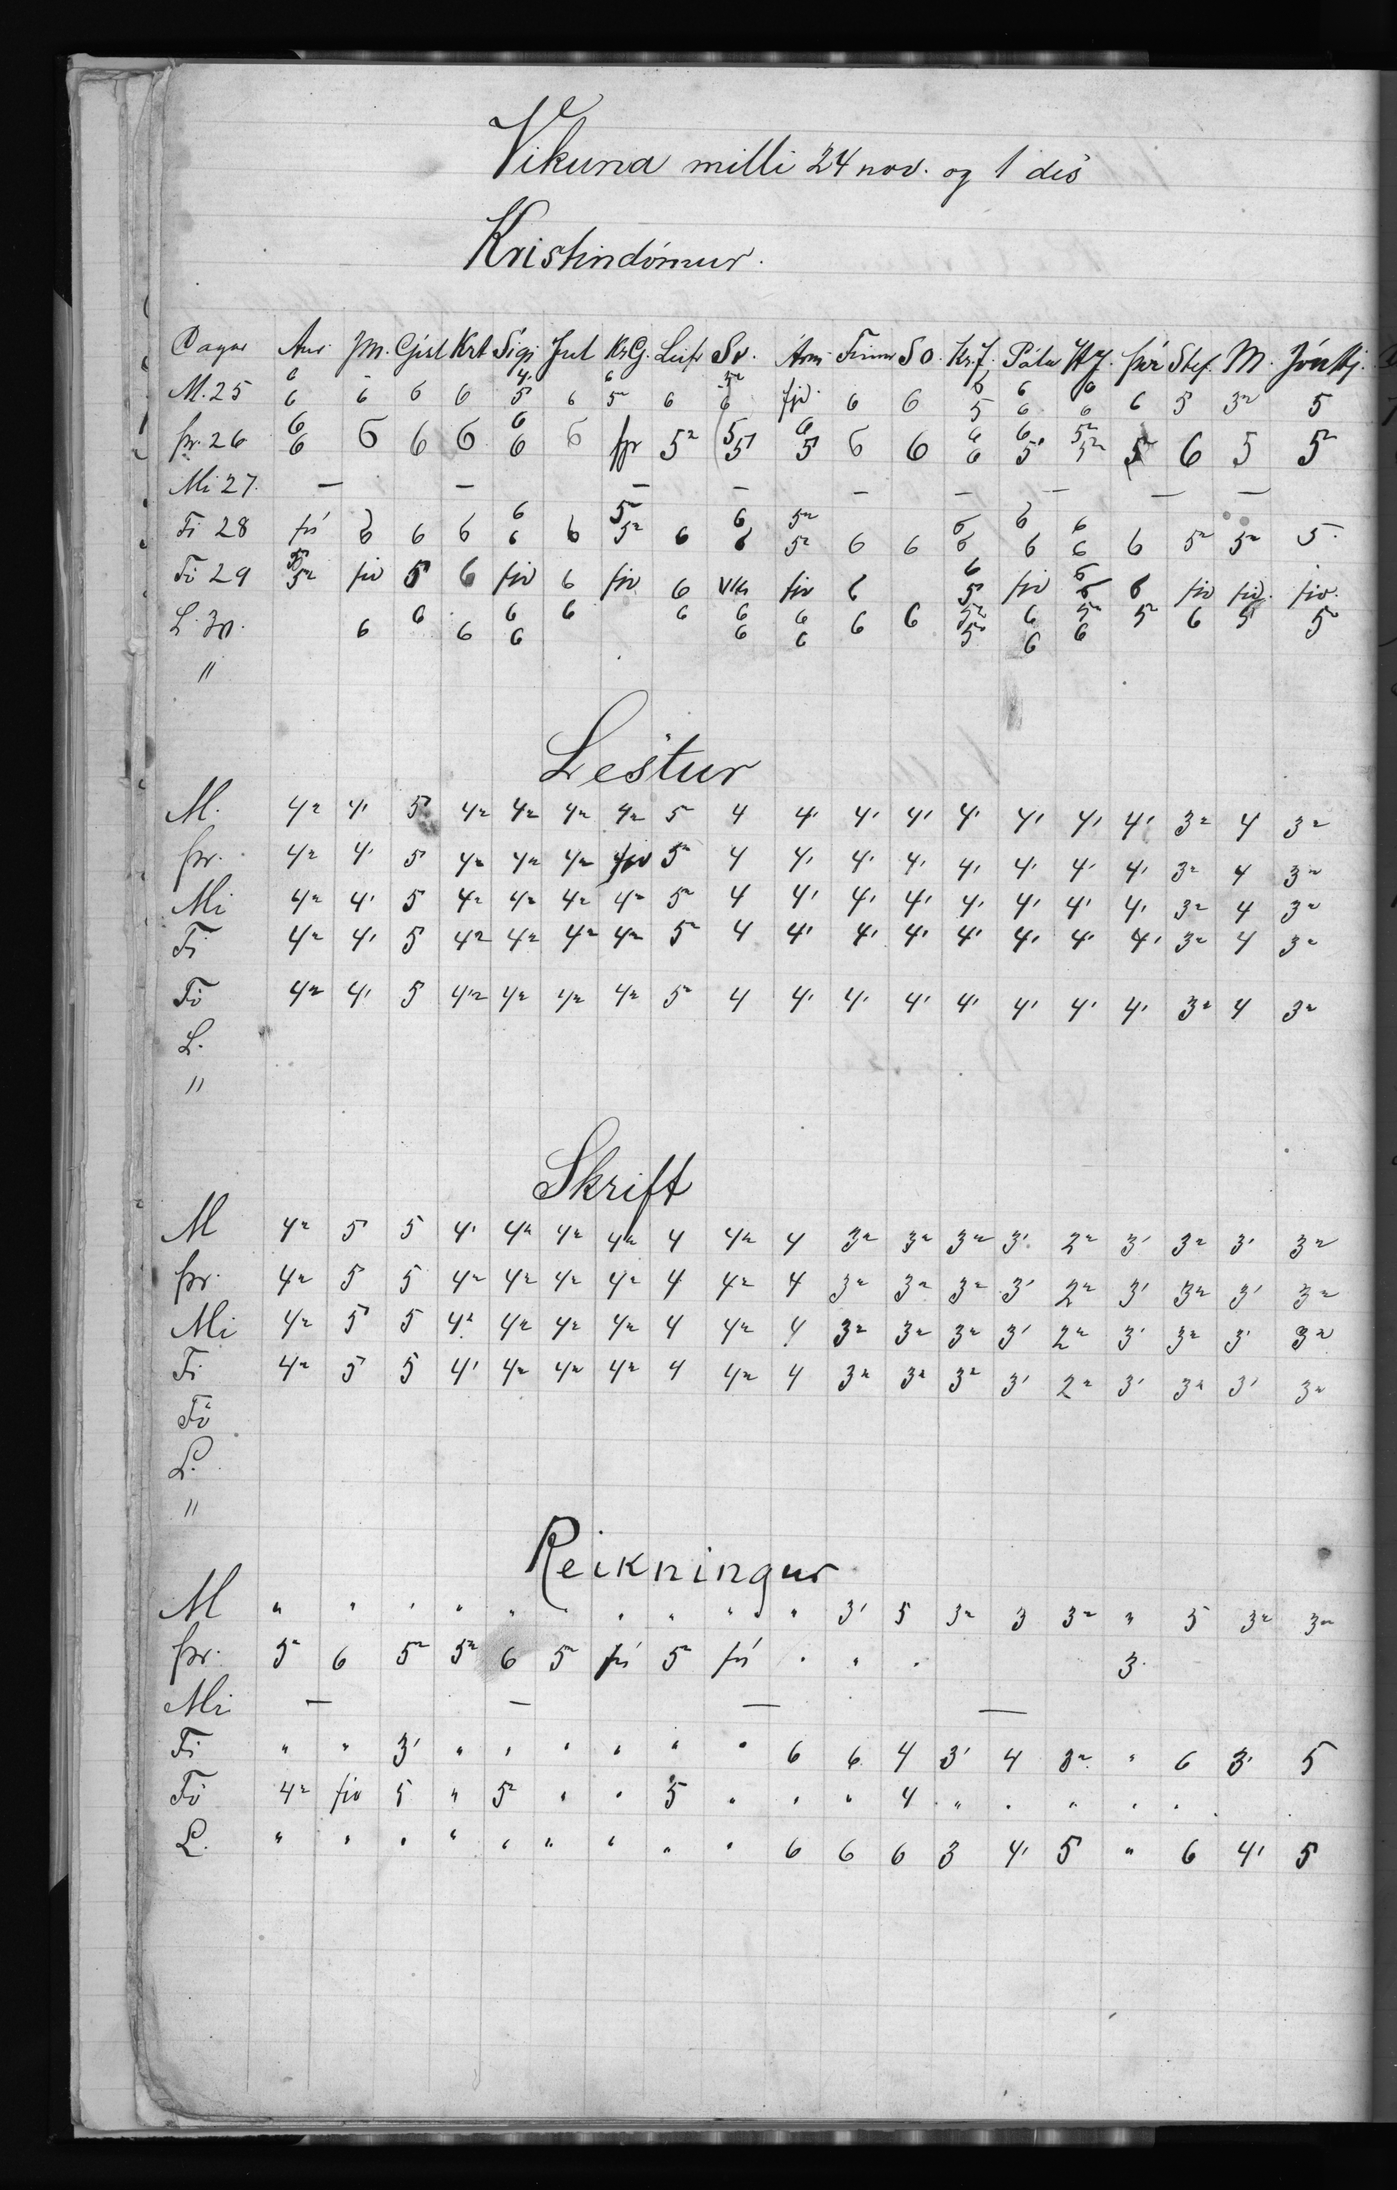 Vikuna milli 24 nov. og 1 des
Kristindómur.
Dagar Jm. Gísl Krt Sigi Jul Kr.G. Leif Sv. Arni Finnur So. Kr.J. Pála H.J. Þór Stef. M.
M. 25 6 6 6 6 5 6 5 6 6 fjv. 6 6 5 6 6 6 5 3" 5
þr. 26 6 6 6 6 6 6 fjv 5" 5 5 6 6 6 5 5" 5" 6 5 5"
Mi 27. — — — — — — — — —
Fi 28 6 6 6 6 6 5" 6 6 5" 6 6 6 6 6 6 5" 5" 5
Fö 29 5" fjv 5 6 fjv 6 fjv 6 fjv 6 5 fjv 6 6 fjv fjv. fjv.
L. 30. 6 6 6 6 6 6 6 6 6 6 5" 6 6 5" 6 5 5"
"
Lestur
M. 4" 4' 5 4" 4" 4" 4" 5" 4 4' 4' 4' 4' 4' 4' 4' 3" 4 3"
þr. 4" 4' 5 4" 4" 4" fjv 5" 4 4' 4' 4' 4' 4' 4' 4' 3" 4 3"
Mi 4" 4' 5 4" 4" 4" 4" 5" 4 4' 4' 4' 4' 4' 4' 4' 3" 4 3"
Fi 4" 4' 5 4" 4" 4" 4" 5" 4 4' 4' 4' 4' 4' 4' 4' 3" 4 3"
Fö 4" 4' 5 4" 4" 4" 4" 5" 4 4' 4' 4' 4' 4' 4' 4' 3" 4 3"
L.
"
Skrift
M 4" 5 5 4' 4" 4" 4" 4 4" 4 3" 3" 3" 3' 2" 3' 3" 3' 3"
þr. 4" 5 5 4" 4" 4" 4" 4 4" 4 3" 3" 3" 3' 2" 3' 3" 3' 3"
Mi 4" 5 5 4" 4" 4" 4" 4 4" 4 3" 3" 3" 3' 2" 3' 3" 3' 3"
Fi 4" 5 5 4' 4" 4" 4" 4 4" 4 3" 3" 3" 3' 2" 3' 3" 3' 3"
Fö
L.
"
Reikningur
M " " " " " " " " " " 3' 5 3" 3 3" " 5 3" 3"
þr. 5" 6 5" 5" 6 5" 5" " " " 3
Mi — — — —
Fi " " 3' " " " " " " 6 6 4 3' 4 3" " 6 3' 5
Fö 4" fjv 5 " 5" " " 5 " " " 4 " " " " "
L. " " " " " " " " " 6 6 6 3 4' 5 " 6 4' 5